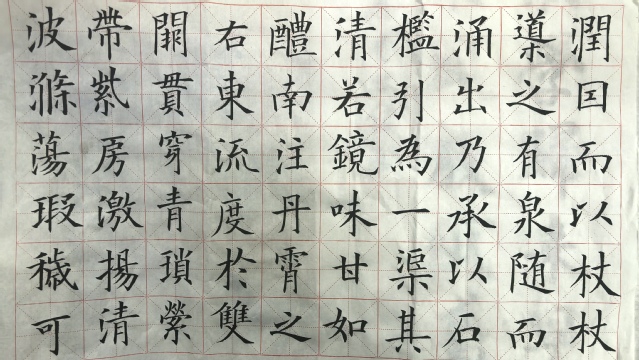 潤囙而以杖杖
導之有泉随而
涌出乃承以石
檻引為一渠其
清若鏡味甘如
醴南注丹霄之
右東流度於雙
闕貫穿青瑣縈
帶紫房激揚清
波滌蕩瑕穢可